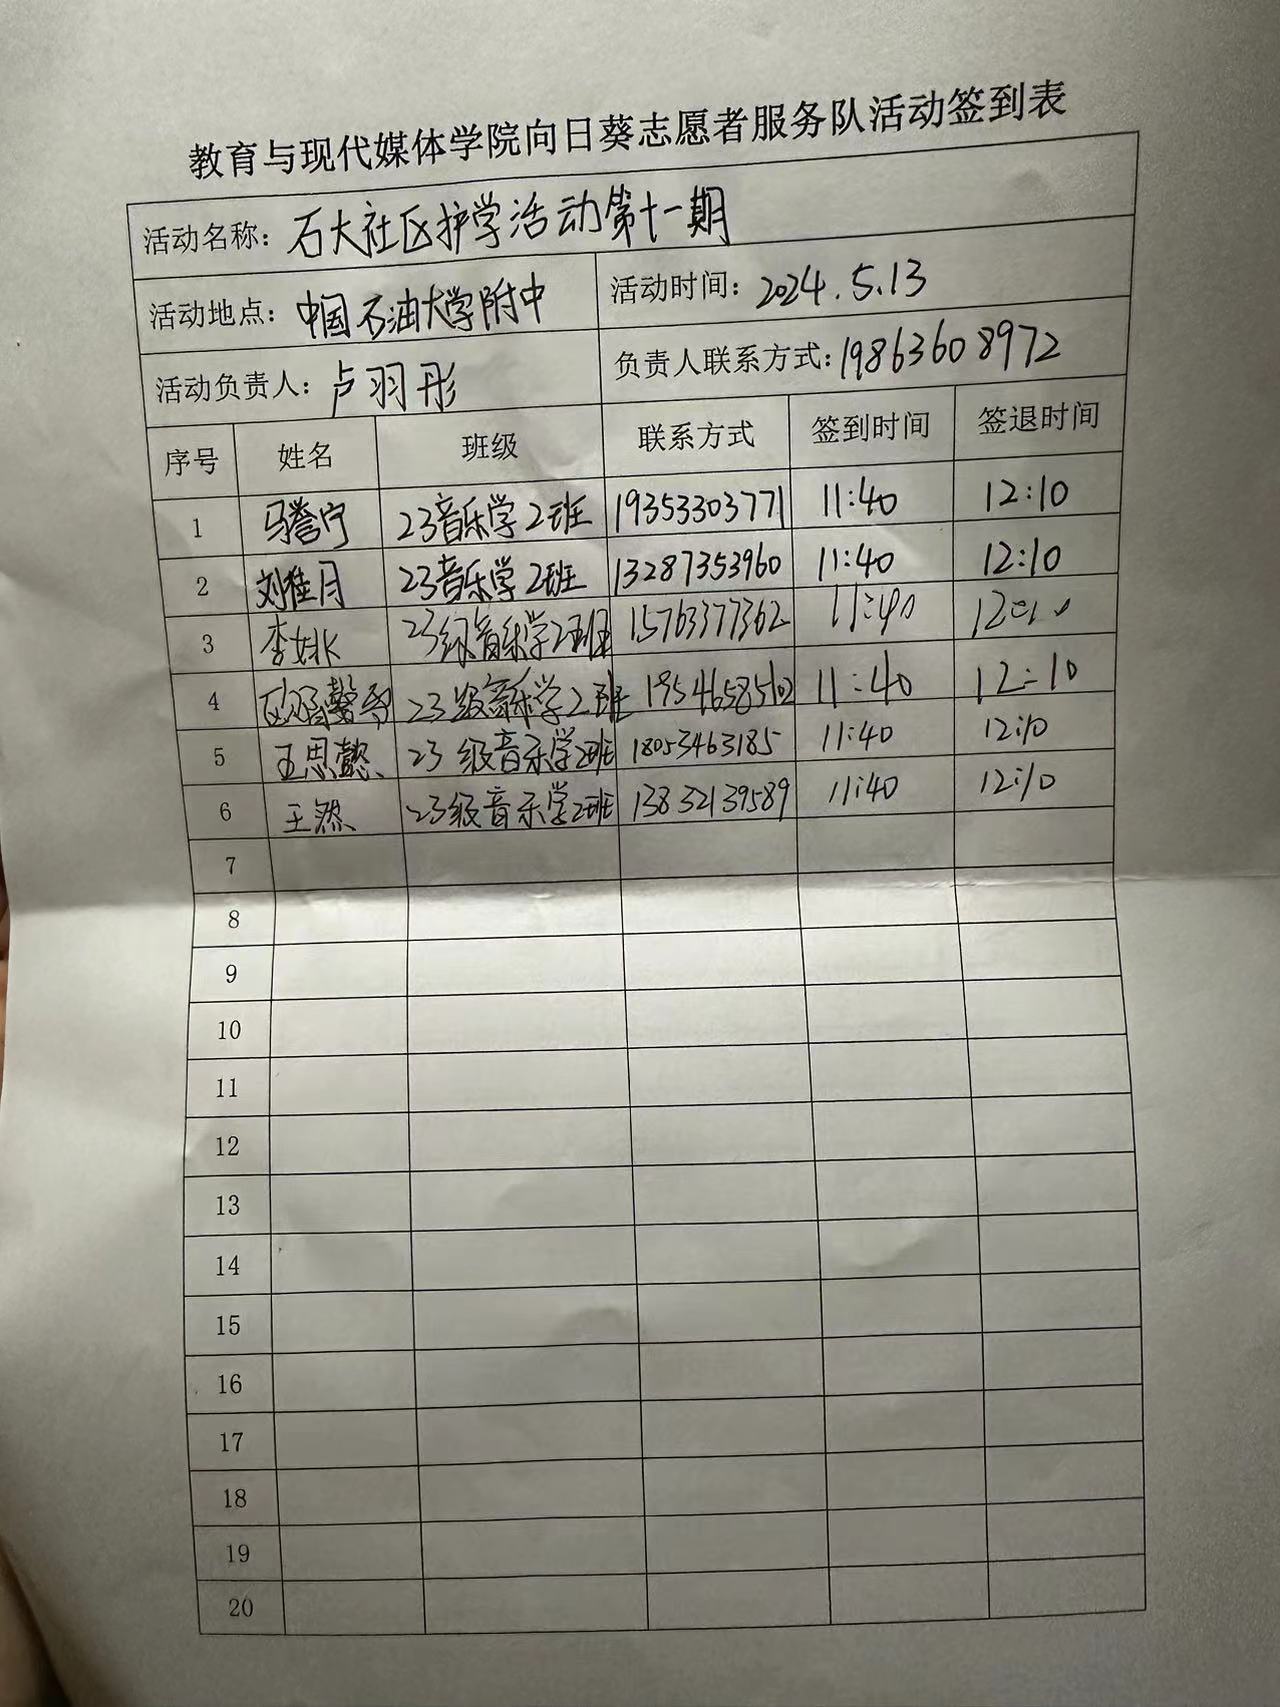 教育与现代媒体学院向日葵志愿者服务队活动签到表
活动名称：石大社区护学活动第十一期
活动地点：中国石油大学附中 活动时间：2024.5.13
活动负责人：卢羽彤 负责人联系方式：19863608972
序号 姓名 班级 联系方式 签到时间 签退时间
1 马誉宁 23音乐学2班 19353303771 11:40 12:10
2 刘佳月 23音乐学2班 13287353960 11:40 12:10
3 李姚 23级音乐学2班 15763377362 11:40 12:10
4 23级音乐学2班 19546585102 11:40 12:10
5 王思懿 23级音乐学2班 18053463185 11:40 12:10
6 王然 23级音乐学2班 13832139589 11:40 12:10
7
8
9
10
11
12
13
14
15
16
17
18
19
20